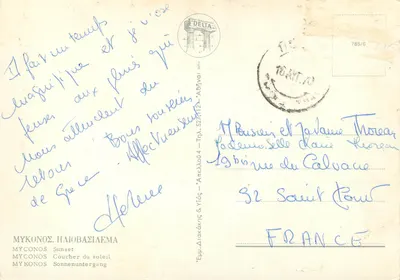 Il fait un temps
magnifique et j'ose
penser aux pluies qui
nous attendent au
retour. Bons souvenirs
de Grèce. Affectueusement
Hélène
ΜΥΚΟΝΟΣ. ΗΛΙΟΒΑΣΙΛΕΜΑ
MYCONOS Sunset
MYCONOS Coucher du soleil
MYKONOS Sonnenuntergang
DELTA
Monsieur et Madame
Mademoiselle
19 bis rue du Calvaire
92 Saint Cloud
FRANCE